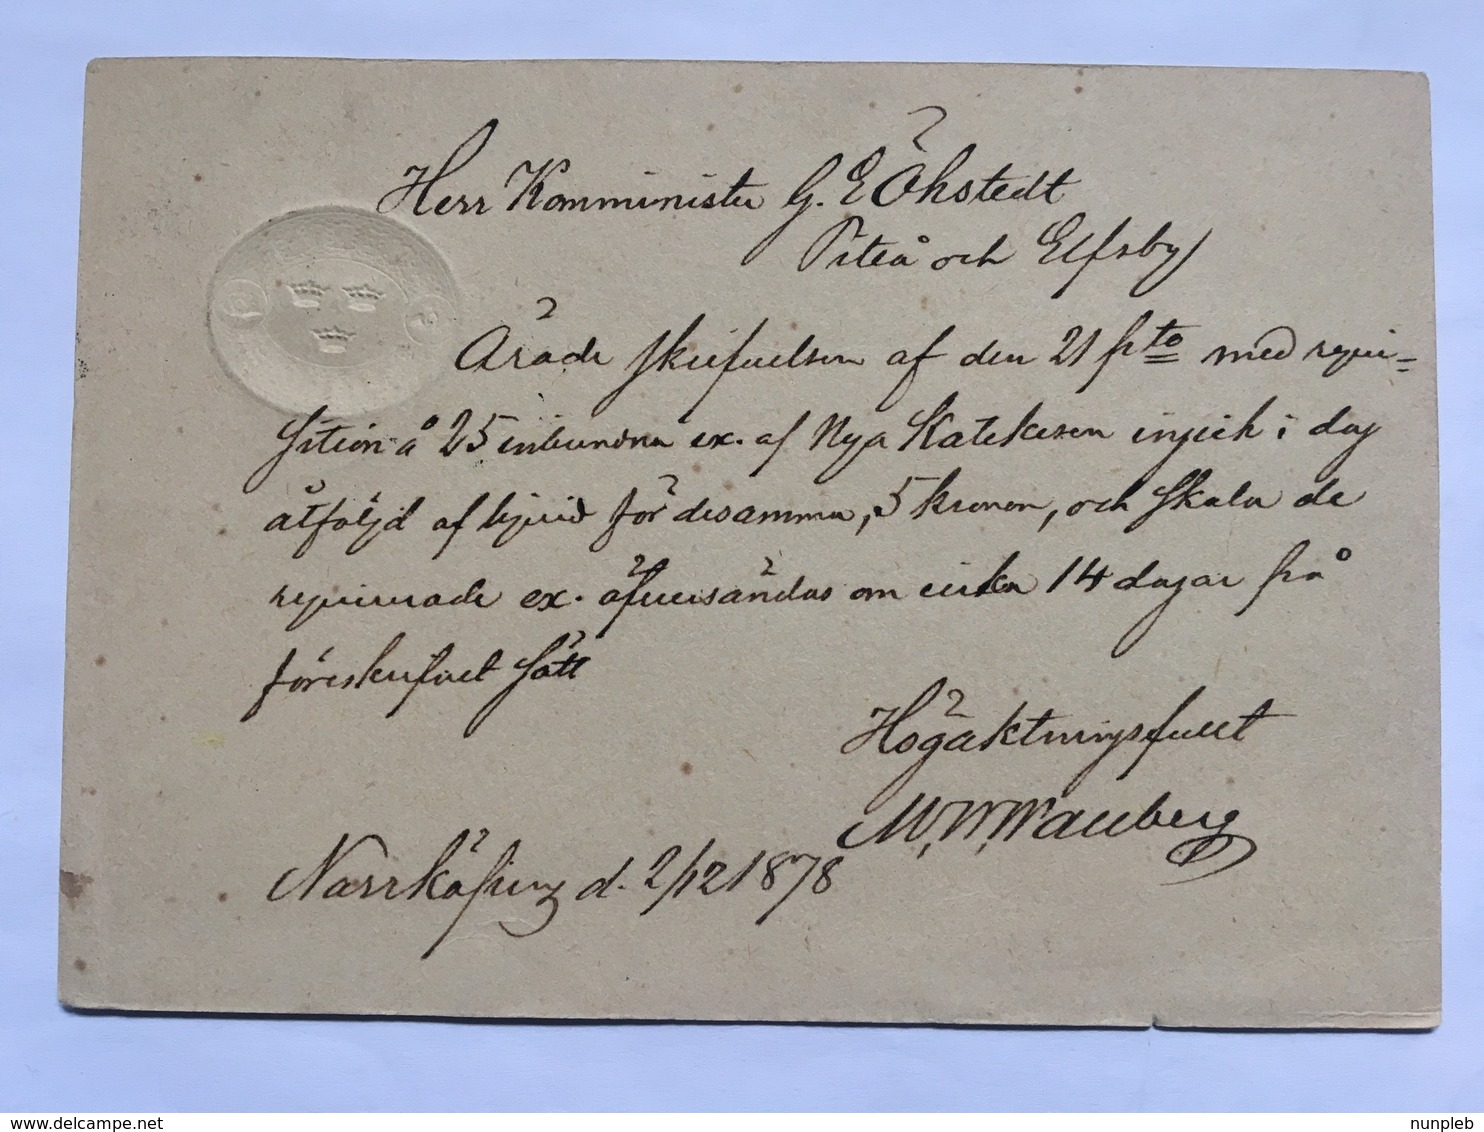 Herr Komminister G. E Öhstedt
Piteå och Elfsby
Ärade skrifvelsen af den 21 psto med requi=
sition å 25 inbundna ex. af Nya Katekesen ingick i dag
åtföljd af liqvid för desamma, 5 kronor, och skola de
requirerade ex. äfversändas om cirka 14 dagar på
föreskrifvet sätt
Högaktningsfullt
M. W. Wallberg
Norrköping d. 2/12 1878
delcampe.net
nunpleb